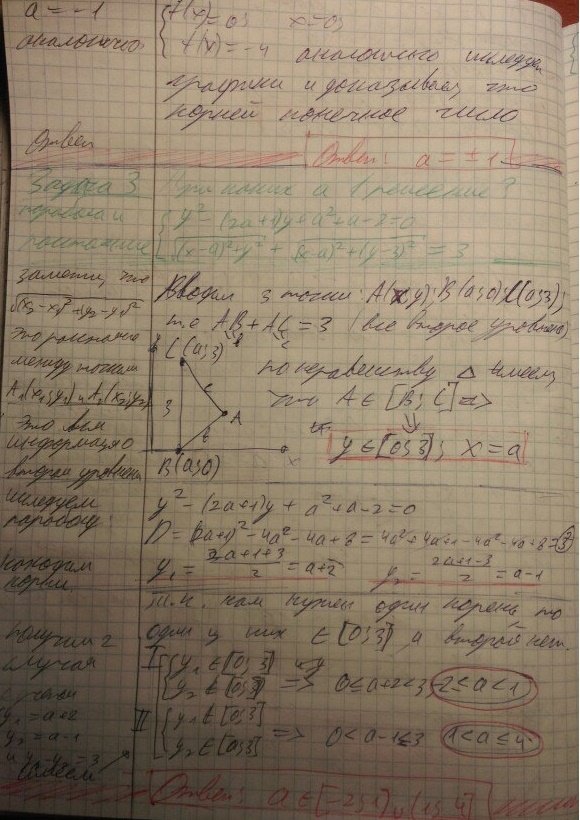 a = -1
аналогично
{ f(x) = 0; x = 0;
f(x) = -4 аналогично исследуем
графики и доказываем, что
корней конечное число
Ответ
Ответ: a = ±1
Задача 3 При каких a 1 решение?
парабола и
расстояние
{ y² - (2a+1)y + a² + a - 2 = 0
√(x-a)²+y² + √(x-a)²+(y-3)² = 3
заметим, что
√(x₂-x₁)²+(y₂-y₁)²
Это расстояние
между точками
A₁(x₁;y₁) и A₂(x₂;y₂)
Это вся
информация
второго уравнения
Вводим 3 точки: A(x;y); B(a;0); C(a;3);
то AB + AC = 3 (всё второе уравнение)
C(a;3)
3
c
A
b
B(a;0)
x
по неравенству Δ имеем,
что A ∈ [B;C] =>
y ∈ [0;3]; x = a
исследуем
параболу:
находим
корни
y² - (2a+1)y + a² + a - 2 = 0
D = (2a+1)² - 4a² - 4a + 8 = 4a² + 4a + 1 - 4a² - 4a + 8 = 3²
y₁ = 2a+1+3/2 = a+2 y₂ = 2a+1-3/2 = a-1
т.к. нам нужен один корень, то
один из них ∈ [0;3], а второй нет.
получим 2
случая
y₁ = a+2
y₂ = a-1
I { y₁ ∈ [0;3]
y₂ ∉ [0;3] => 0 ≤ a+2 < 3 -2 ≤ a < 1
II { y₁ ∉ [0;3]
y₂ ∈ [0;3] => 0 < a-1 ≤ 3 1 < a ≤ 4
Ответ: a ∈ [-2;1) ∪ (1;4]